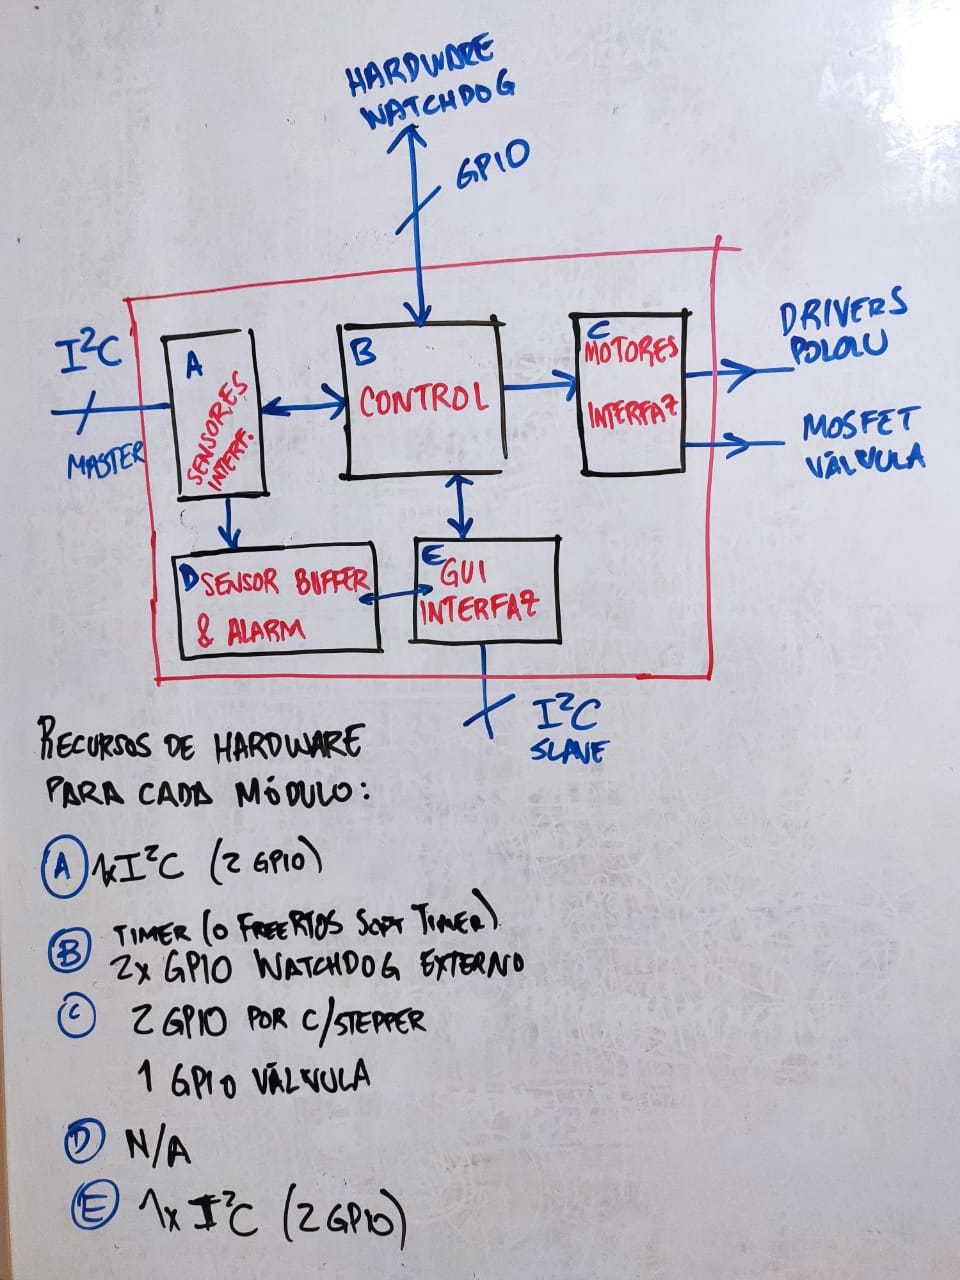 HARDWARE
WATCHDOG
GPIO
I²C
MASTER
A
SENSORES
INTERF.
B
CONTROL
C
MOTORES
INTERFAZ
DRIVERS
POLOLU
MOSFET
VÁLVULA
D SENSOR BUFFER
& ALARM
E
GUI
INTERFAZ
I²C
SLAVE
RECURSOS DE HARDWARE
PARA CADA MÓDULO:
A 1xI²C (2 GPIO)
B TIMER (O FREERTOS SOFT TIMER)
2x GPIO WATCHDOG EXTERNO
C 2 GPIO POR C/STEPPER
1 GPIO VÁLVULA
D N/A
E 1x I²C (2 GPIO)